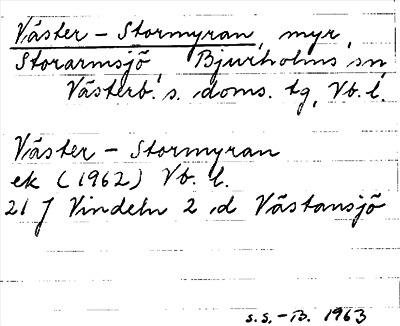 Väster - Stormyran, myr,
Storarmsjö, Bjurholms sn,
Västerb. s. doms. tg, Vb. l.
Väster - Stormyran
ek (1962) Vb. l.
21 J Vindeln 2 d Västansjö
s.s. - B. 1963